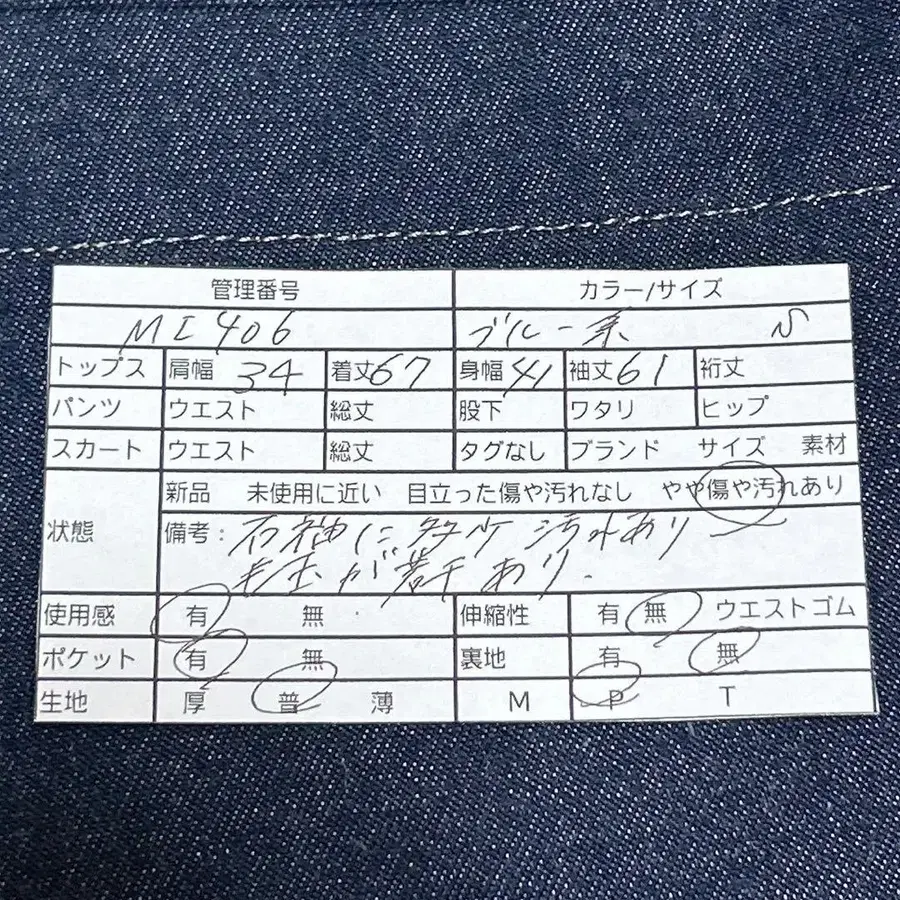 管理番号 カラー/サイズ
MI406 ブルー系
トップス 肩幅 34 着丈 67 身幅 41 袖丈 61 裄丈
パンツ ウエスト 総丈 股下 ワタリ ヒップ
スカート ウエスト 総丈 タグなし ブランド サイズ 素材
新品 未使用に近い 目立った傷や汚れなし やや傷や汚れあり
状態 備考: 右袖に多少汚れあり
毛玉が若干あり.
使用感 有 無 伸縮性 有 無 ウエストゴム
ポケット 有 無 裏地 有 無
生地 厚 普 薄 M P T